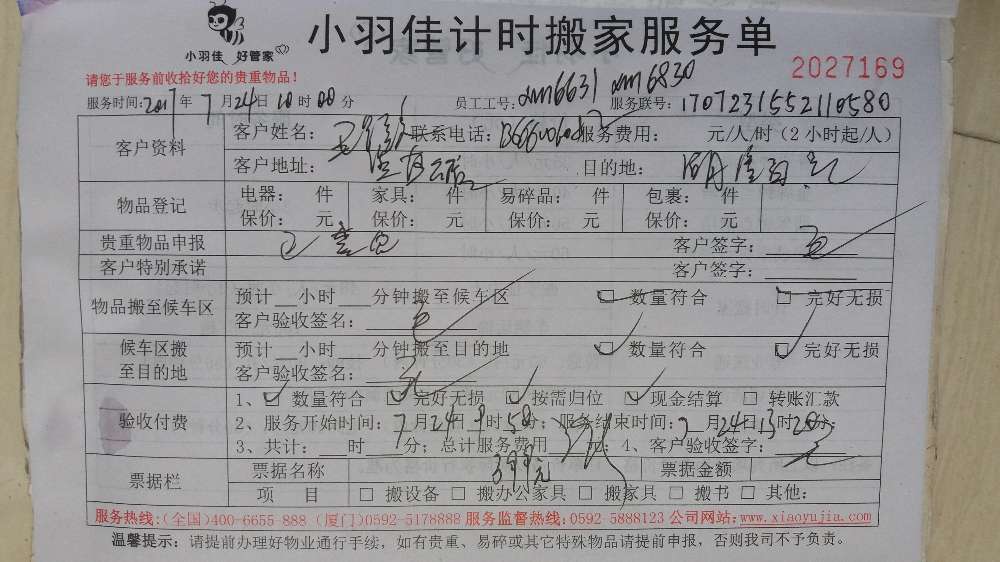 小羽佳 好管家
小羽佳计时搬家服务单
2027169
请您于服务前收拾好您的贵重物品！
服务时间：2017年7月24日10时00分 员工工号：xm6631 xm6830 服务联号：1707231552110580
客户资料
客户姓名： 联系电话： 服务费用： 元/人/时（2小时起/人）
客户地址： 目的地：
物品登记
电器： 件 家具： 件 易碎品： 件 包裹： 件
保价： 元 保价： 元 保价： 元 保价： 元
贵重物品申报 客户签字：
客户特别承诺 客户签字：
物品搬至候车区
预计__小时___分钟搬至候车区 数量符合 完好无损
客户验收签名：
候车区搬至目的地
预计__小时___分钟搬至目的地 数量符合 完好无损
客户验收签名：
验收付费
1、数量符合 完好无损 按需归位 现金结算 转账汇款
2、服务开始时间：7月24日9时58分；服务结束时间：7月24日13时20分；
3、共计：___时___分；总计服务费用399元；4、客户验收签字：
票据栏
票据名称 票据金额
项 目 搬设备 搬办公家具 搬家具 搬书 其他：
服务热线：(全国)400-6655 888 (厦门)0592-5178888 服务监督热线：0592-5888123 公司网站：www.xiaoyujia.com
温馨提示：请提前办理好物业通行手续，如有贵重、易碎或其它特殊物品请提前申报，否则我司不予负责。